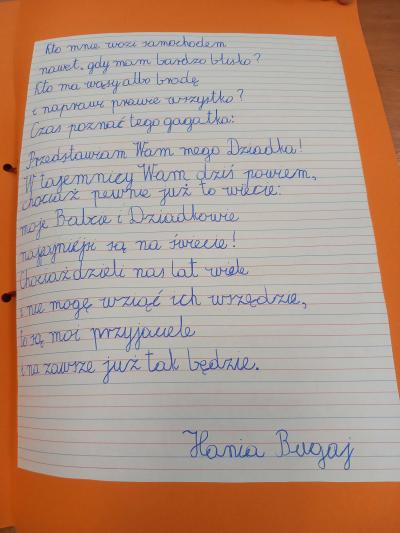 Kto mnie wozi samochodem
nawet, gdy mam bardzo blisko?
Kto ma wąsy albo brodę
i naprawi prawie wszystko?
Czas poznać tego gagatka:
Przedstawiam Wam mego Dziadka!
W tajemnicy Wam dziś powiem,
chociaż pewnie już to wiecie:
moje Babcie i Dziadkowie
najfajniejsi są na świecie!
Chociaż dzieli nas lat wiele
i nie mogę wziąć ich wszędzie,
to są moi przyjaciele
i na zawsze już tak będzie.
Hania Bugaj